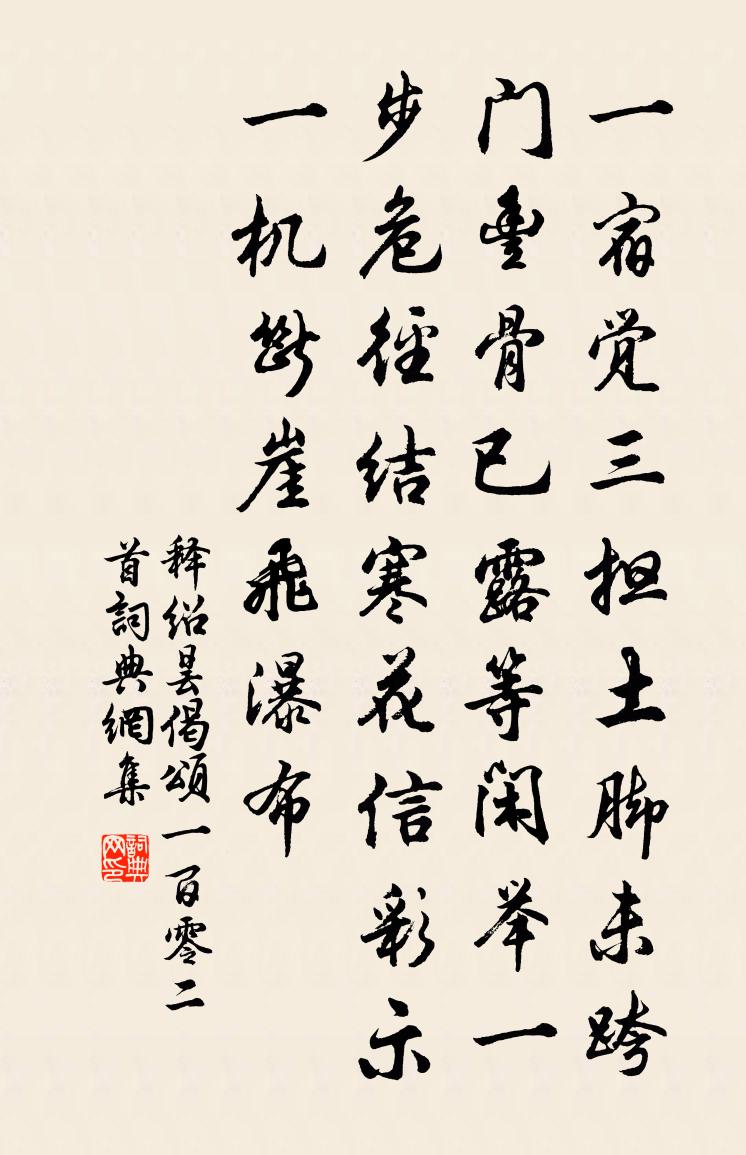 一宿觉三担土脚未跨
门豊骨已露等闲举一
步危径结寒花信彩示
一机断崖飞瀑布
释绍昙偈頌一百零二
首詞典網集
詞典网印